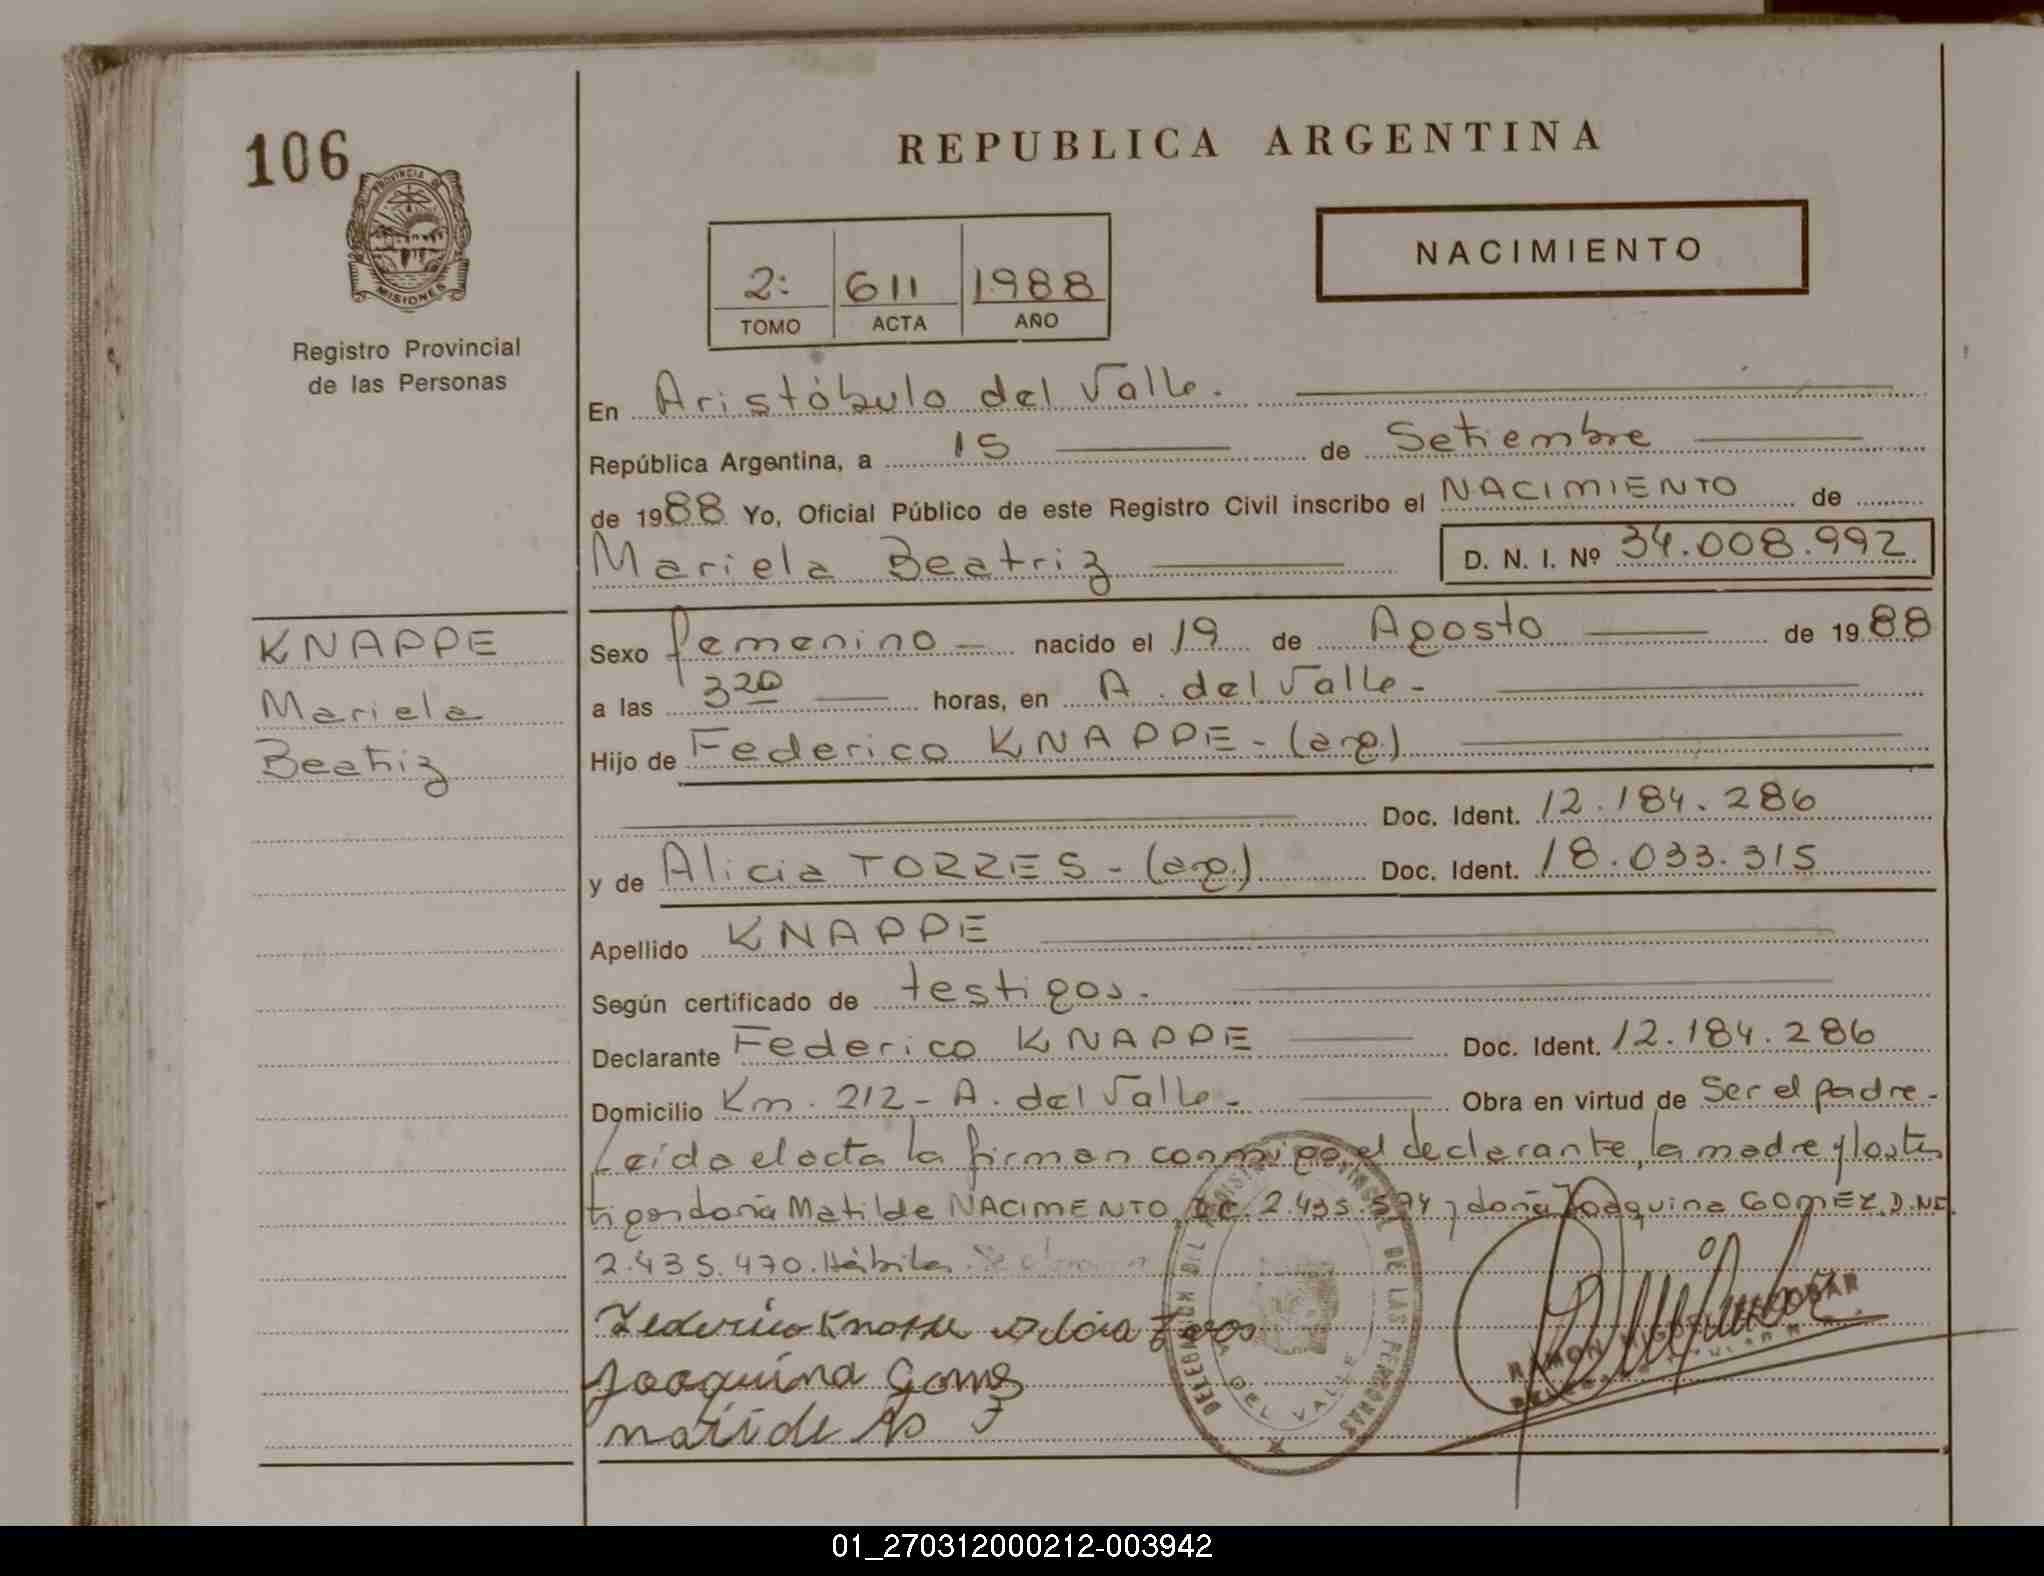 106
PROVINCIA DE
MISIONES
Registro Provincial
de las Personas
KNAPPE
Mariela
Beatriz
REPUBLICA ARGENTINA
NACIMIENTO
2: 611 1988
TOMO ACTA AÑO
En Aristóbulo del Valle.
República Argentina, a 15 de Setiembre
de 1988 Yo, Oficial Público de este Registro Civil inscribo el NACIMIENTO de
Mariela Beatriz D. N. I. Nº 34.008.992
Sexo femenino nacido el 19 de Agosto de 1988
a las 3 20 horas, en A. del Valle-
Hijo de Federico KNAPPE - (arg.)
Doc. Ident. 12.184.286
y de Alicia TORRES - (arg.) Doc. Ident. 18.033.315
Apellido KNAPPE
Según certificado de testigos.
Declarante Federico KNAPPE Doc. Ident. 12.184.286
Domicilio Km. 212 - A. del Valle - Obra en virtud de Ser el padre -
Leída el acta la firman conmigo, el declarante, la madre y los tes
tigos doña Matilde NACIMENTO, 2.435.594 y doña Joaquina GOMEZ. D.NI.
2.435.470. Hábiles
Federico Knappe
Joaquina Gomez
DEL VALLE
DE LAS PERSONAS
RAMON
01_270312000212-003942